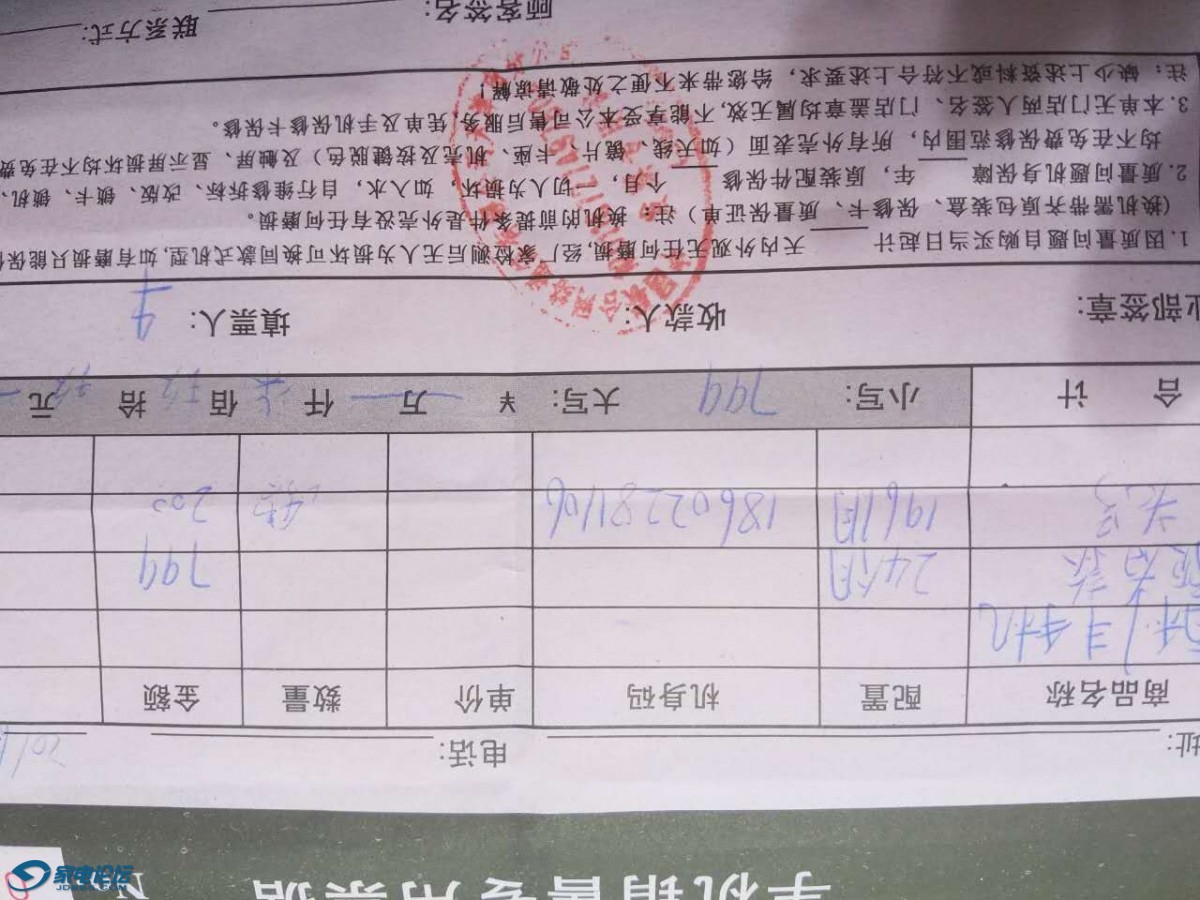 手机销售专用票据 No
址: 电话: 201
商品名称 配置 机身码 单价 数量 金额
手机
24个月 799
19611月 18602281106 200
合 计 小写: 799 大写: ¥ 万 仟 佰 拾 元
业部签章: 收款人: 填票人:
1.因质量问题自购买当日起计 天内外观无任何磨损,经厂家检测后无人为损坏可换同款式机型,如有磨损只能保
(换机需带齐原包装盒、保修卡、质量保证单)注:换机的前提条件是外壳没有任何磨损。
2.质量问题机身保障 年,原装配件保修 个月,一切人为损坏,如入水,自行维修拆标、改版、锁卡、锁机、
均不在免费保修范围内,所有外壳表面(如天线、镜片、卡座、机壳及按键脱色)及触屏、显示屏损坏均不在免费
3.本单无门店两人签名、门店盖章均属无效,不能享受本公司售后服务,凭单及手机保修卡保修。
注:缺少上述资料或不符合上述要求,给您带来不便之处敬请谅解!
顾客签名: 联系方式:
家电论坛